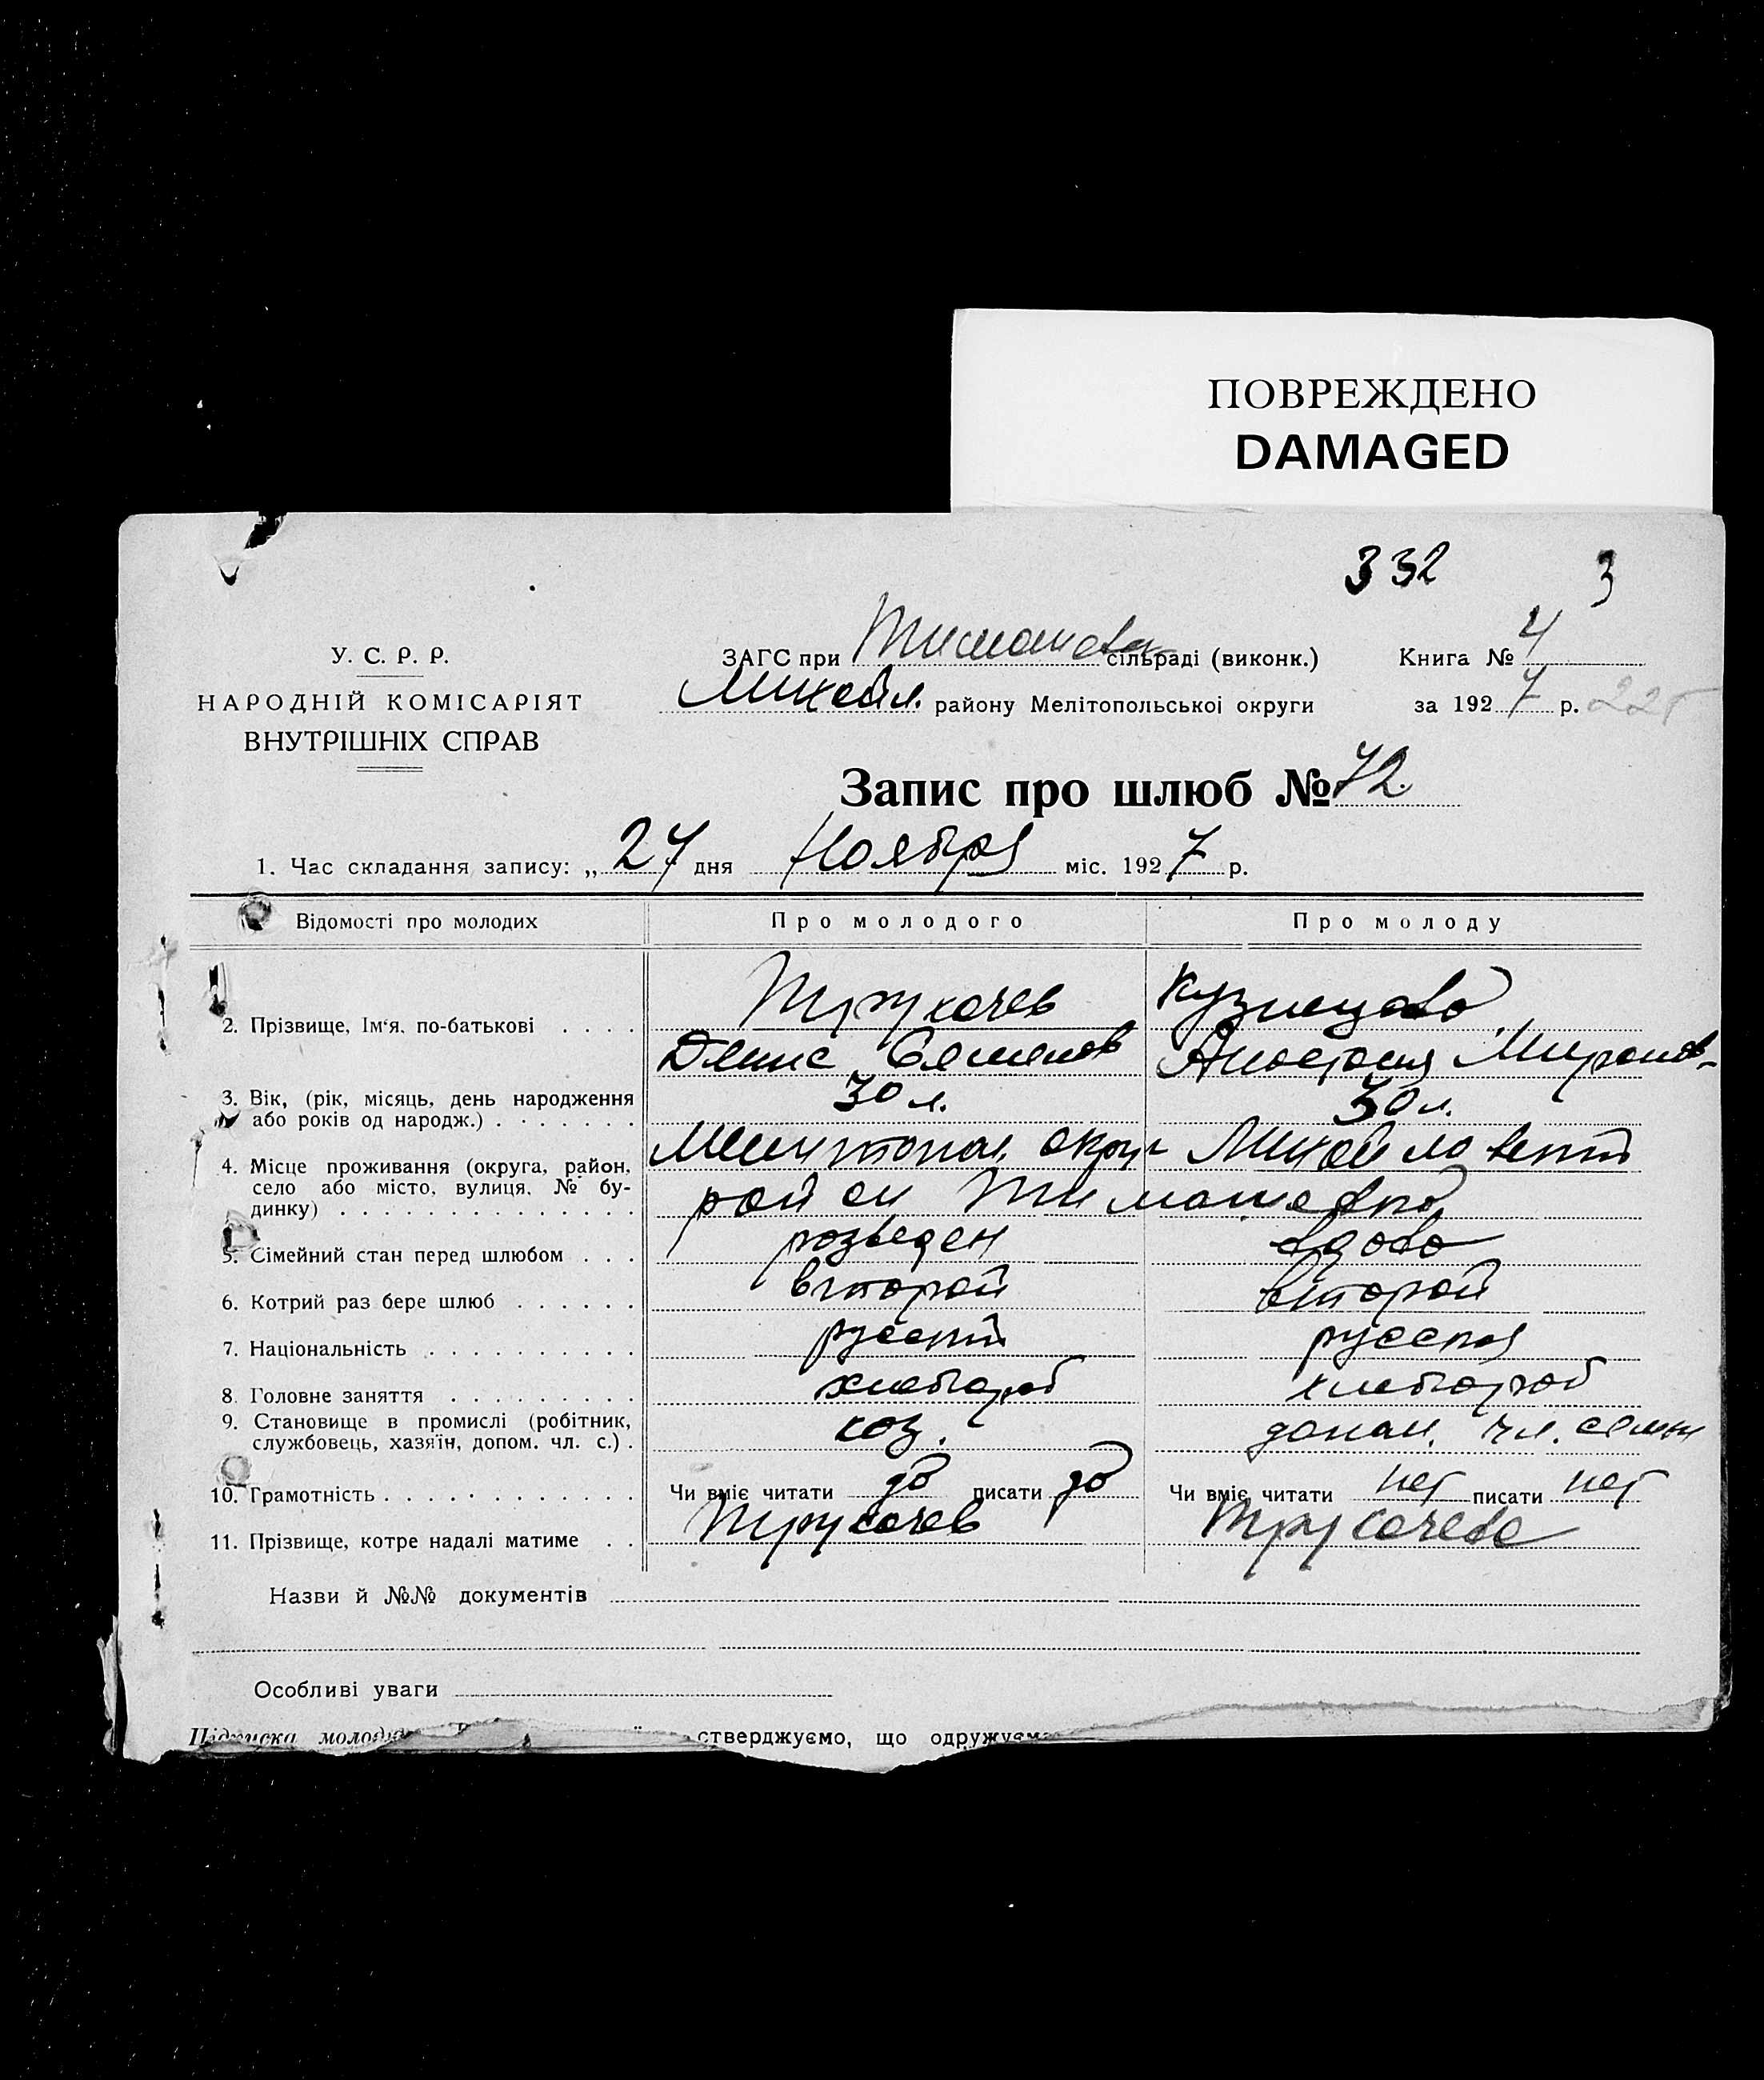 ПОВРЕЖДЕНО
DAMAGED
332 3
У. С. Р. Р.
НАРОДНІЙ КОМІСАРІЯТ
ВНУТРІШНІХ СПРАВ
ЗАГС при сільраді (виконк.)
Михайл. району Мелітопольської округи
Книга № 4
за 1927 р.
Запис про шлюб № 72.
1. Час складання запису: „ 27 дня Ноября міс. 1927 р.
Відомості про молодих Про молодого Про молоду
2. Прізвище, Ім'я, по-батькові . . . . Трукачев Кузнецова
Денис Семенов Анастасия Миронов-
3. Вік, (рік, місяць, день народження
або років од народж.) . . . . . . . 30 л. 30 л.
4. Місце проживання (округа, район,
село або місто, вулиця, № бу-
динку) . . . . . . . . . . . . . .
Мелитопол. округ Михайловский
район Тимашевка
5. Сімейний стан перед шлюбом . . . розведен вдова
6. Котрий раз бере шлюб . . . . . . второй второй
7. Національність . . . . . . . . . . русский русская
8. Головне заняття . . . . . . . . . хлебороб хлебороб
9. Становище в промислі (робітник,
службовець, хазяїн, допом. чл. с.) . хоз. допом. чл. семьи
10. Грамотність . . . . . . . . . . . . Чи вміє читати да писати да Чи вміє читати нет писати нет
11. Прізвище, котре надалі матиме . . Трукачев Трукачева
Назви й №№ документів
Особливі уваги
Підписка стверджуємо, що